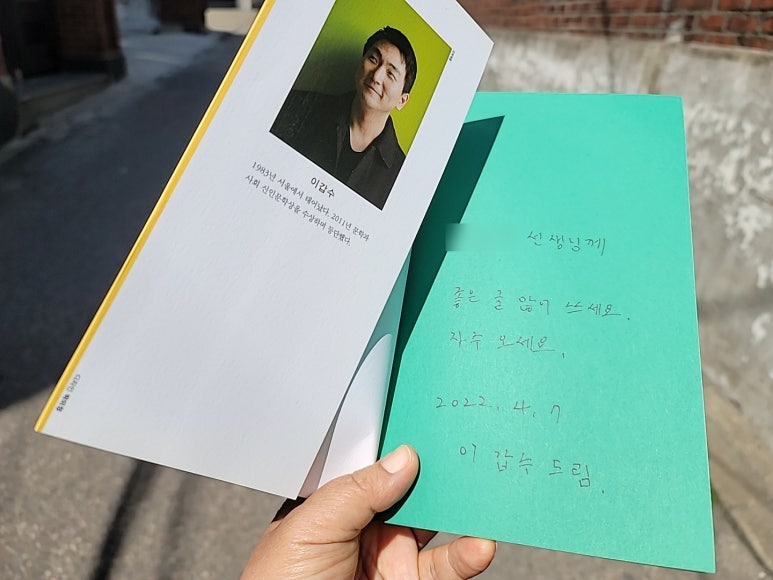 이갑수
1983년 서울에서 태어났다. 2011년 문학과
사회 신인문학상을 수상하며 등단했다.
디자인
선생님께
좋은 글 많이 쓰세요.
자주 오세요.
2022. 4. 7
이 갑수 드림.